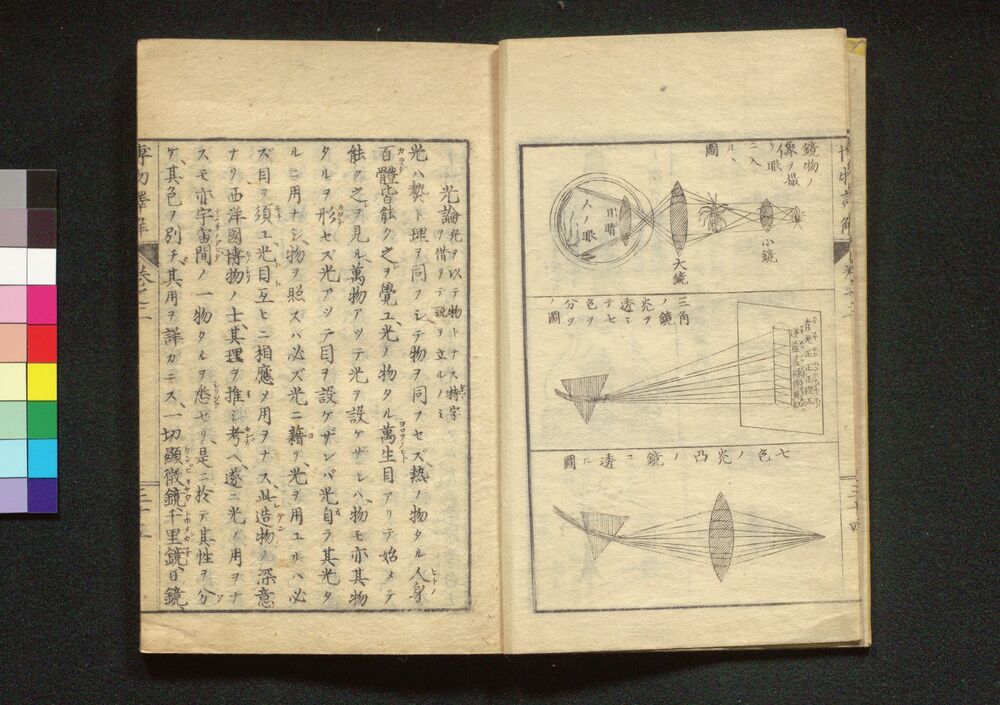 鏡物ノ
像ヲ撮
リ眼
ニ入
ルヽ
圖
小鏡
大鏡
人ノ眼
三角
ノ鏡
光ヲ
透ミ
テ七
色ヲ
分ツ
ノ圖
七色ノ光凸ノ鏡ニ透ル圖
光論 光ヲ以テ物トナス特字
ヲ借リテ説ヲ立ルノミ
光ハ熱ト理ヲ同フシテ物ヲ同フセズ、熱ノ物タル人身
百體皆能ク之ヲ覺ユ、光ノ物タル萬生目アリテ始メテ
能ク之ヲ見ル、萬物アツテ光ヲ設ケザレハ、物モ亦其物
タルヲ形セズ光アツテ目ヲ設ケザレバ光自ラ其光タ
ルニ用ナシ、物ヲ照スハ必ズ光ニ藉リ、光ヲ用ユルハ必
ズ目ヲ須ユ光目互ヒニ相應メ用ヲナス、此造物ノ深意
ナリ西洋國博物ノ士、其理ヲ推シ考ヘ、遂ニ光ノ用ヲナ
スモ亦宇宙間ノ一物タルヲ悉セリ、是ニ於テ其性ヲ分
ケ、其色ヲ別チ其用ヲ詳カニス、一切顯微鏡千里鏡、日鏡、